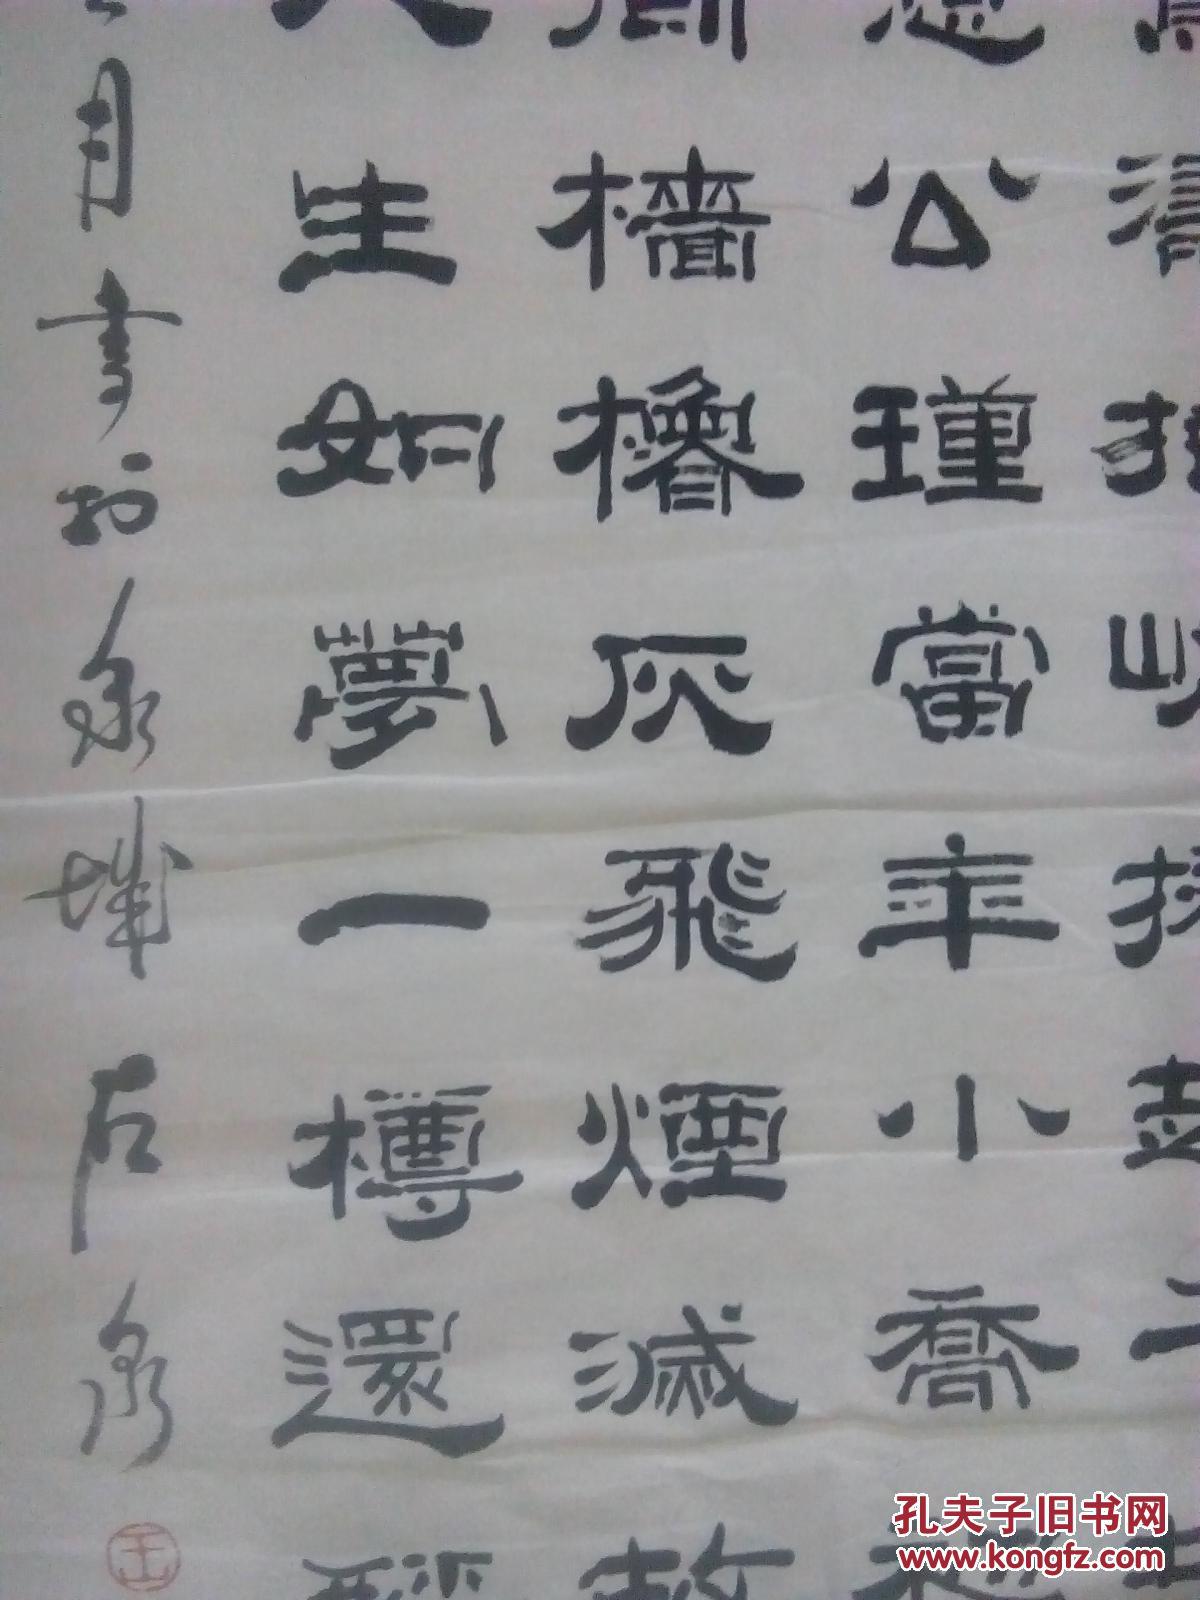 濤拍岸
想公瑾當年小喬
間檣櫓灰飛煙滅故
人生如夢一樽還酹
月書於泉城
王
孔夫子旧书网
www.kongfz.com